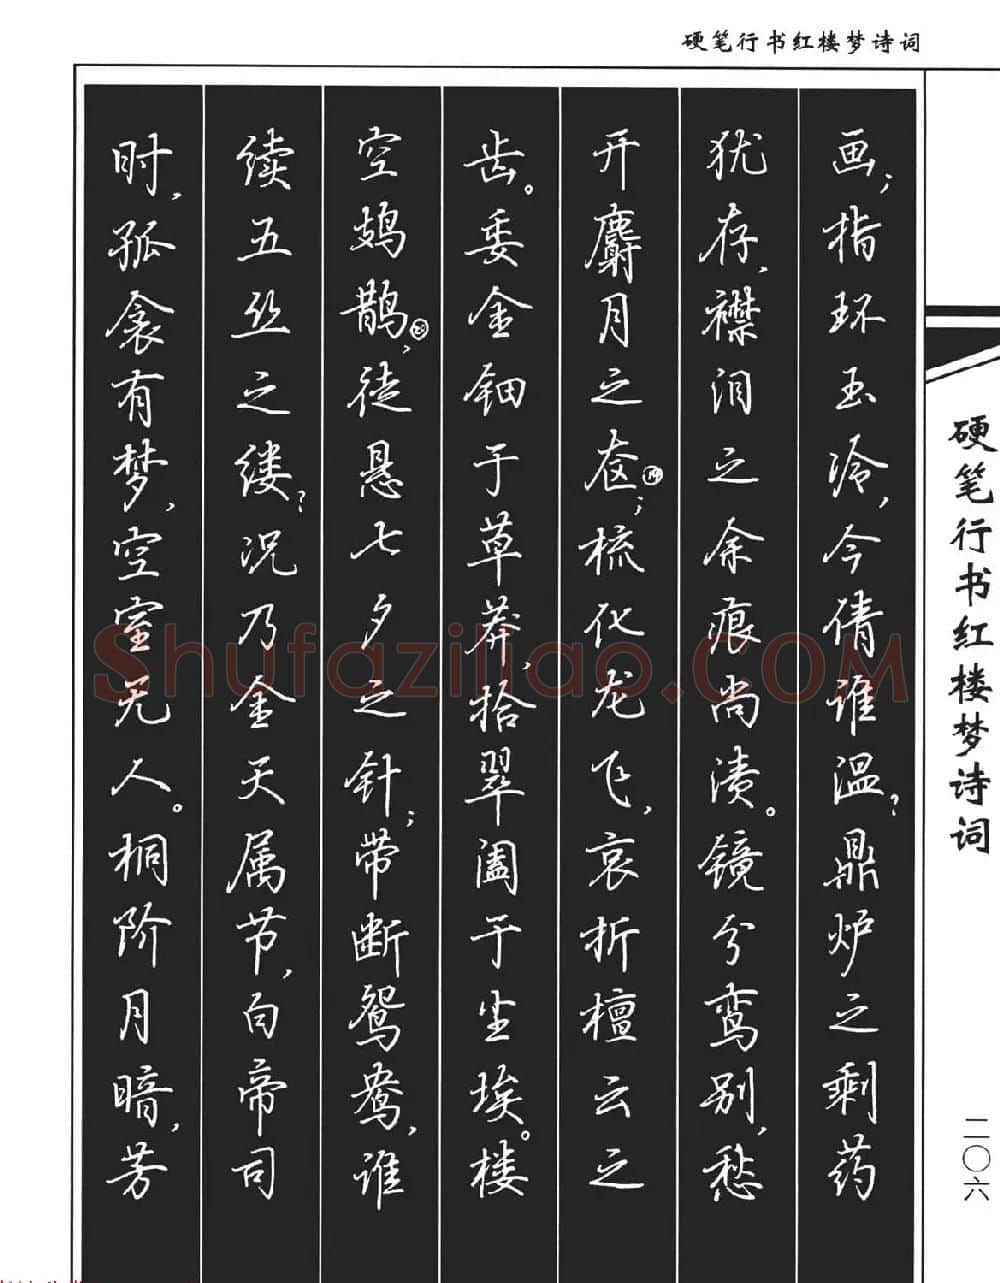 硬笔行书红楼梦诗词
画;指环玉冷,今倩谁温?鼎炉之剩药
犹存,襟泪之余痕尚渍。镜分鸾别,愁
开麝月之奁;梳化龙飞,哀折檀云之
齿。委金钿于草莽,拾翠阖于尘埃。楼
空𫛛鹊,徒悬七夕之针;带断鸳鸯,谁
续五丝之缕?况乃金天属节,白帝司
时,孤衾有梦,空室无人。桐阶月暗,芳
硬笔行书红楼梦诗词
二〇六
Shufaziliao.COM